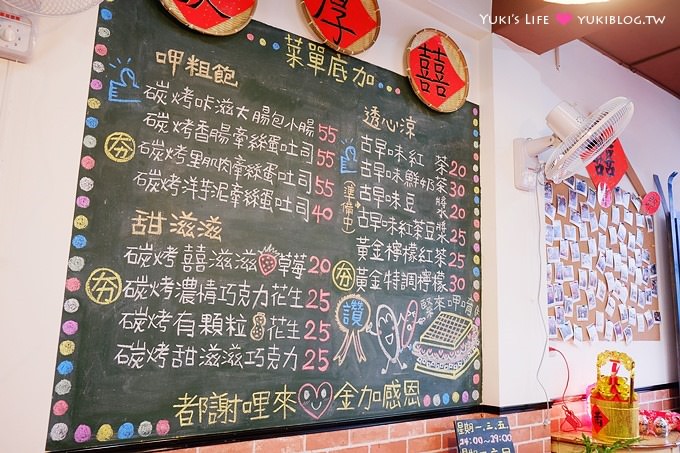 YUKI'S LIFE ♥ YUKIBLOG.TW
囍
囍
菜單底加
呷粗飽
碳烤咔滋大腸包小腸 55
碳烤香腸牽絲蛋吐司 55
夯 碳烤里肌肉牽絲蛋吐司 55
碳烤洋芋泥牽絲蛋吐司 40
甜滋滋
碳烤囍滋滋草莓 20
夯 碳烤濃情巧克力花生 25
碳烤有顆粒花生 25
碳烤甜滋滋巧克力 25
透心涼
古早味紅茶 20
古早味鮮奶茶 30
準備中 古早味豆漿 20
古早味紅茶豆漿 25
黃金檸檬紅茶 25
夯 黃金特調檸檬 30
讚
緊來呷唷
都謝哩來 金加感恩
星期一.三.五